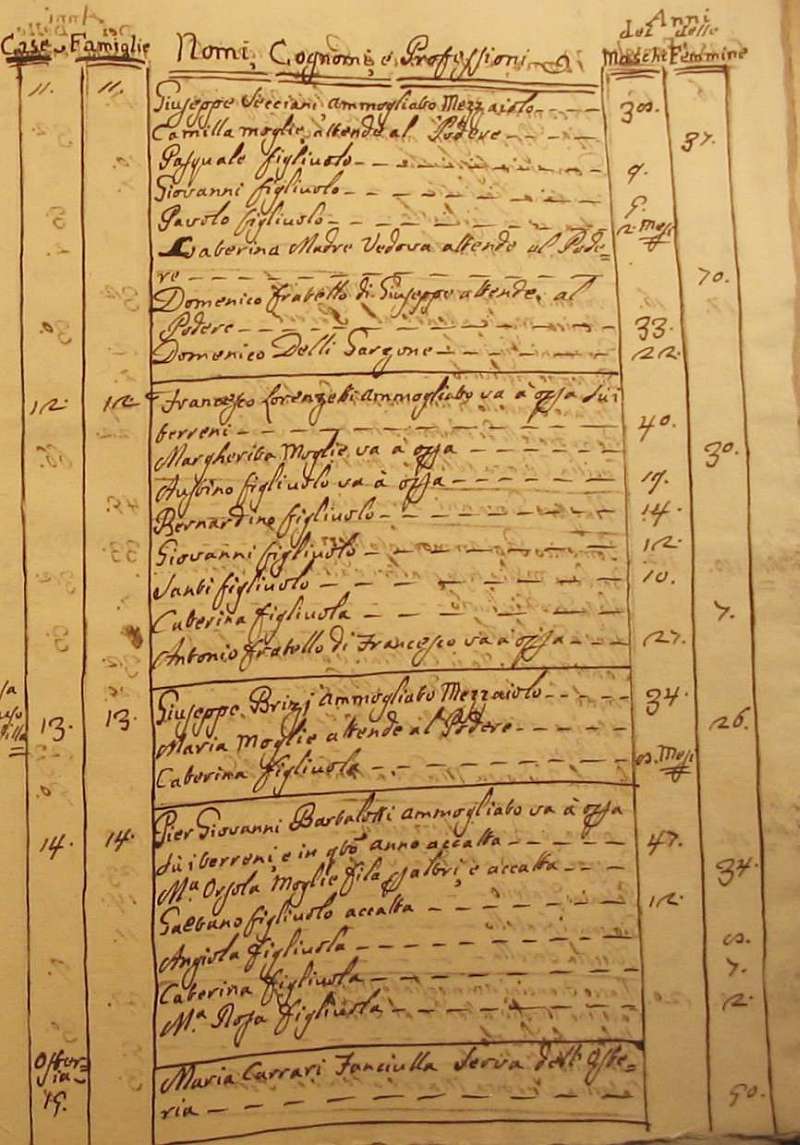 Case Famiglie Nomi, Cognomi, e Professioni Anni
dei Maschi delle Femmine
11. 11. Giuseppe Secciani ammogliato Mezzaiolo 38.
Camilla moglie, attende al Podere 37.
Pasquale figliuolo 9.
Giovanni figliuolo 5.
Pavolo figliuolo 2. Mesi
Caterina Madre Vedova attende al Pode=
re 70.
Domenico fratello di Giuseppe attende al
Podere 33.
Domenico Delli Garzone 22.
12. 12. Francesco Lorenzetti ammogliato va à opra sù i
terreni 40.
Margherita Moglie va à opra 30.
Ausbino figliuolo va à opra 17.
Bernardino figliuolo 14.
Giovanni figliuolo 12.
Santi figliuolo 10.
Caterina figliuola 7.
Antonio fratello di Francesco va à opra 27.
13. 13. Giuseppe Brizzj ammogliato Mezzaiolo 34.
Maria Moglie attende al Podere 26.
Caterina figliuola 8. Mesi
14. 14. Pier Giovanni Barbalotti ammogliato va à opra
sù i terreni, e in qto anno accatta 47.
M.a Orsola Moglie fila, e accatta 34.
Gaetano figliuolo accatta 12.
Angiola figliuola 8.
Caterina figliuola 7.
M.a Rosa figliuola 2.
Oster=
ia
15. Maria Carrari Fanciulla Serva dell'Oste=
ria 50.